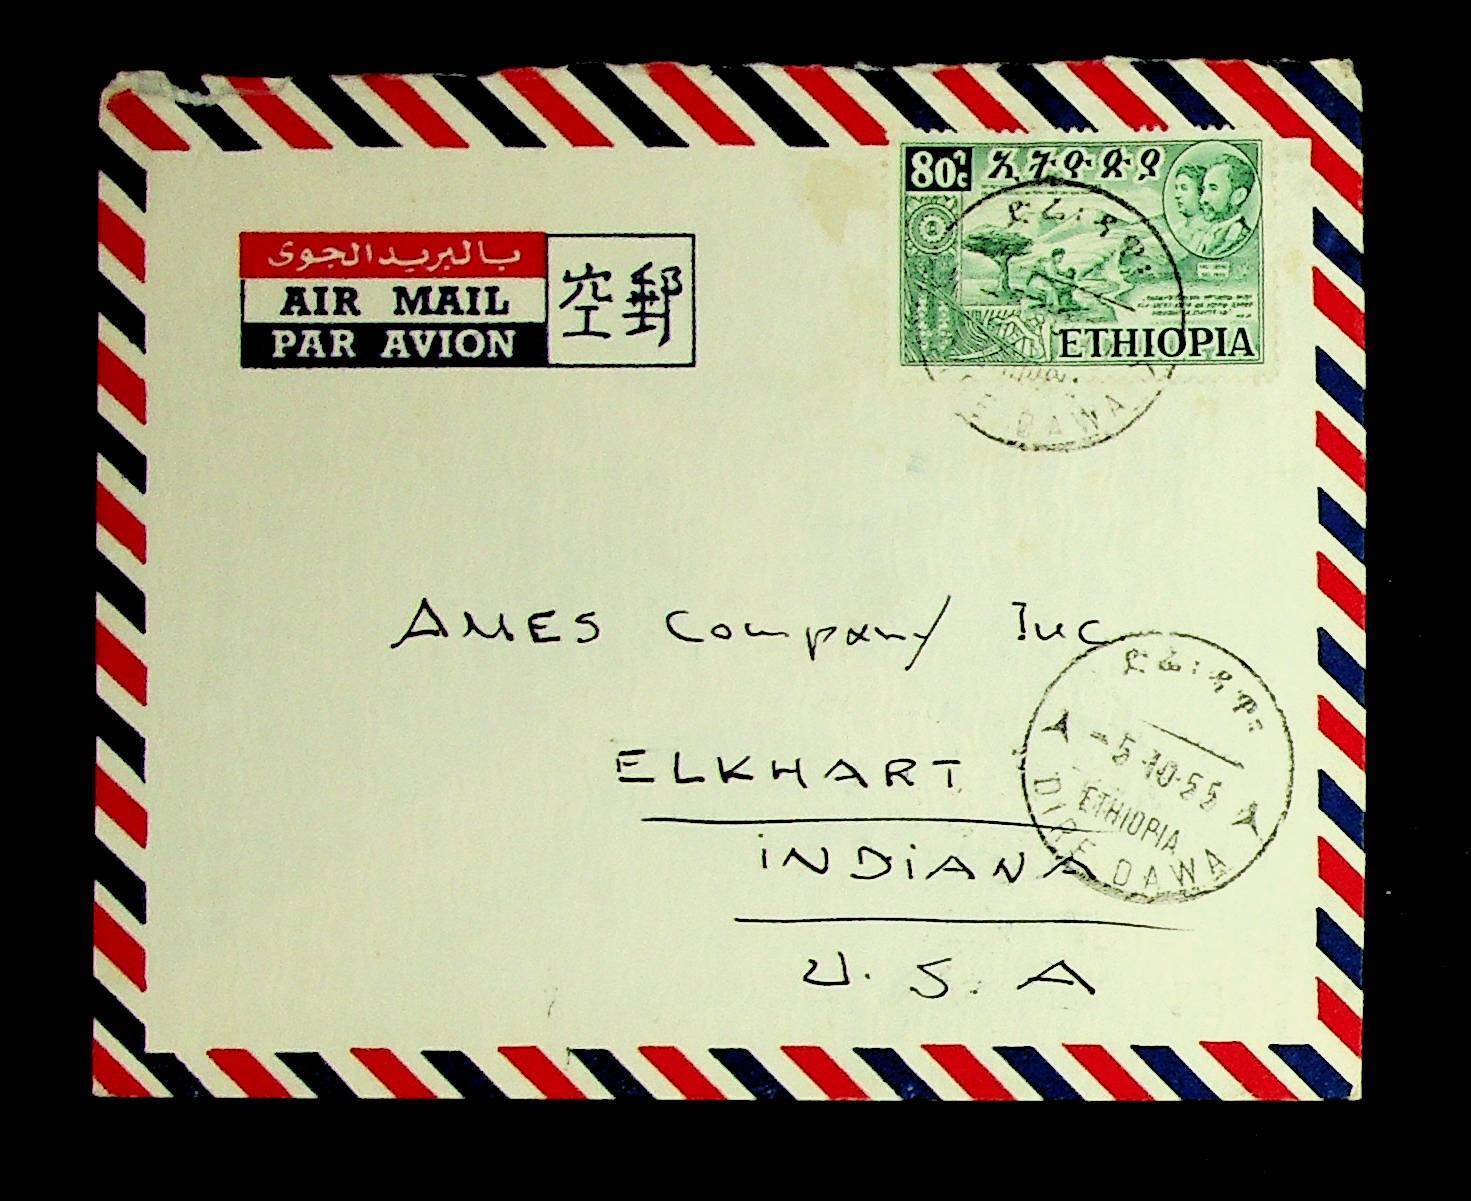 80c
ኢትዮጵያ
ETHIOPIA
ድሬ፡ዳዋ፡
DAWA
بالبريد الجوى
AIR MAIL
PAR AVION
空郵
AMES Company Inc
ELKHART
INDIANA
U.S.A
ድሬ፡ዳዋ፡
-5-10-55
ETHIOPIA
DIRE DAWA